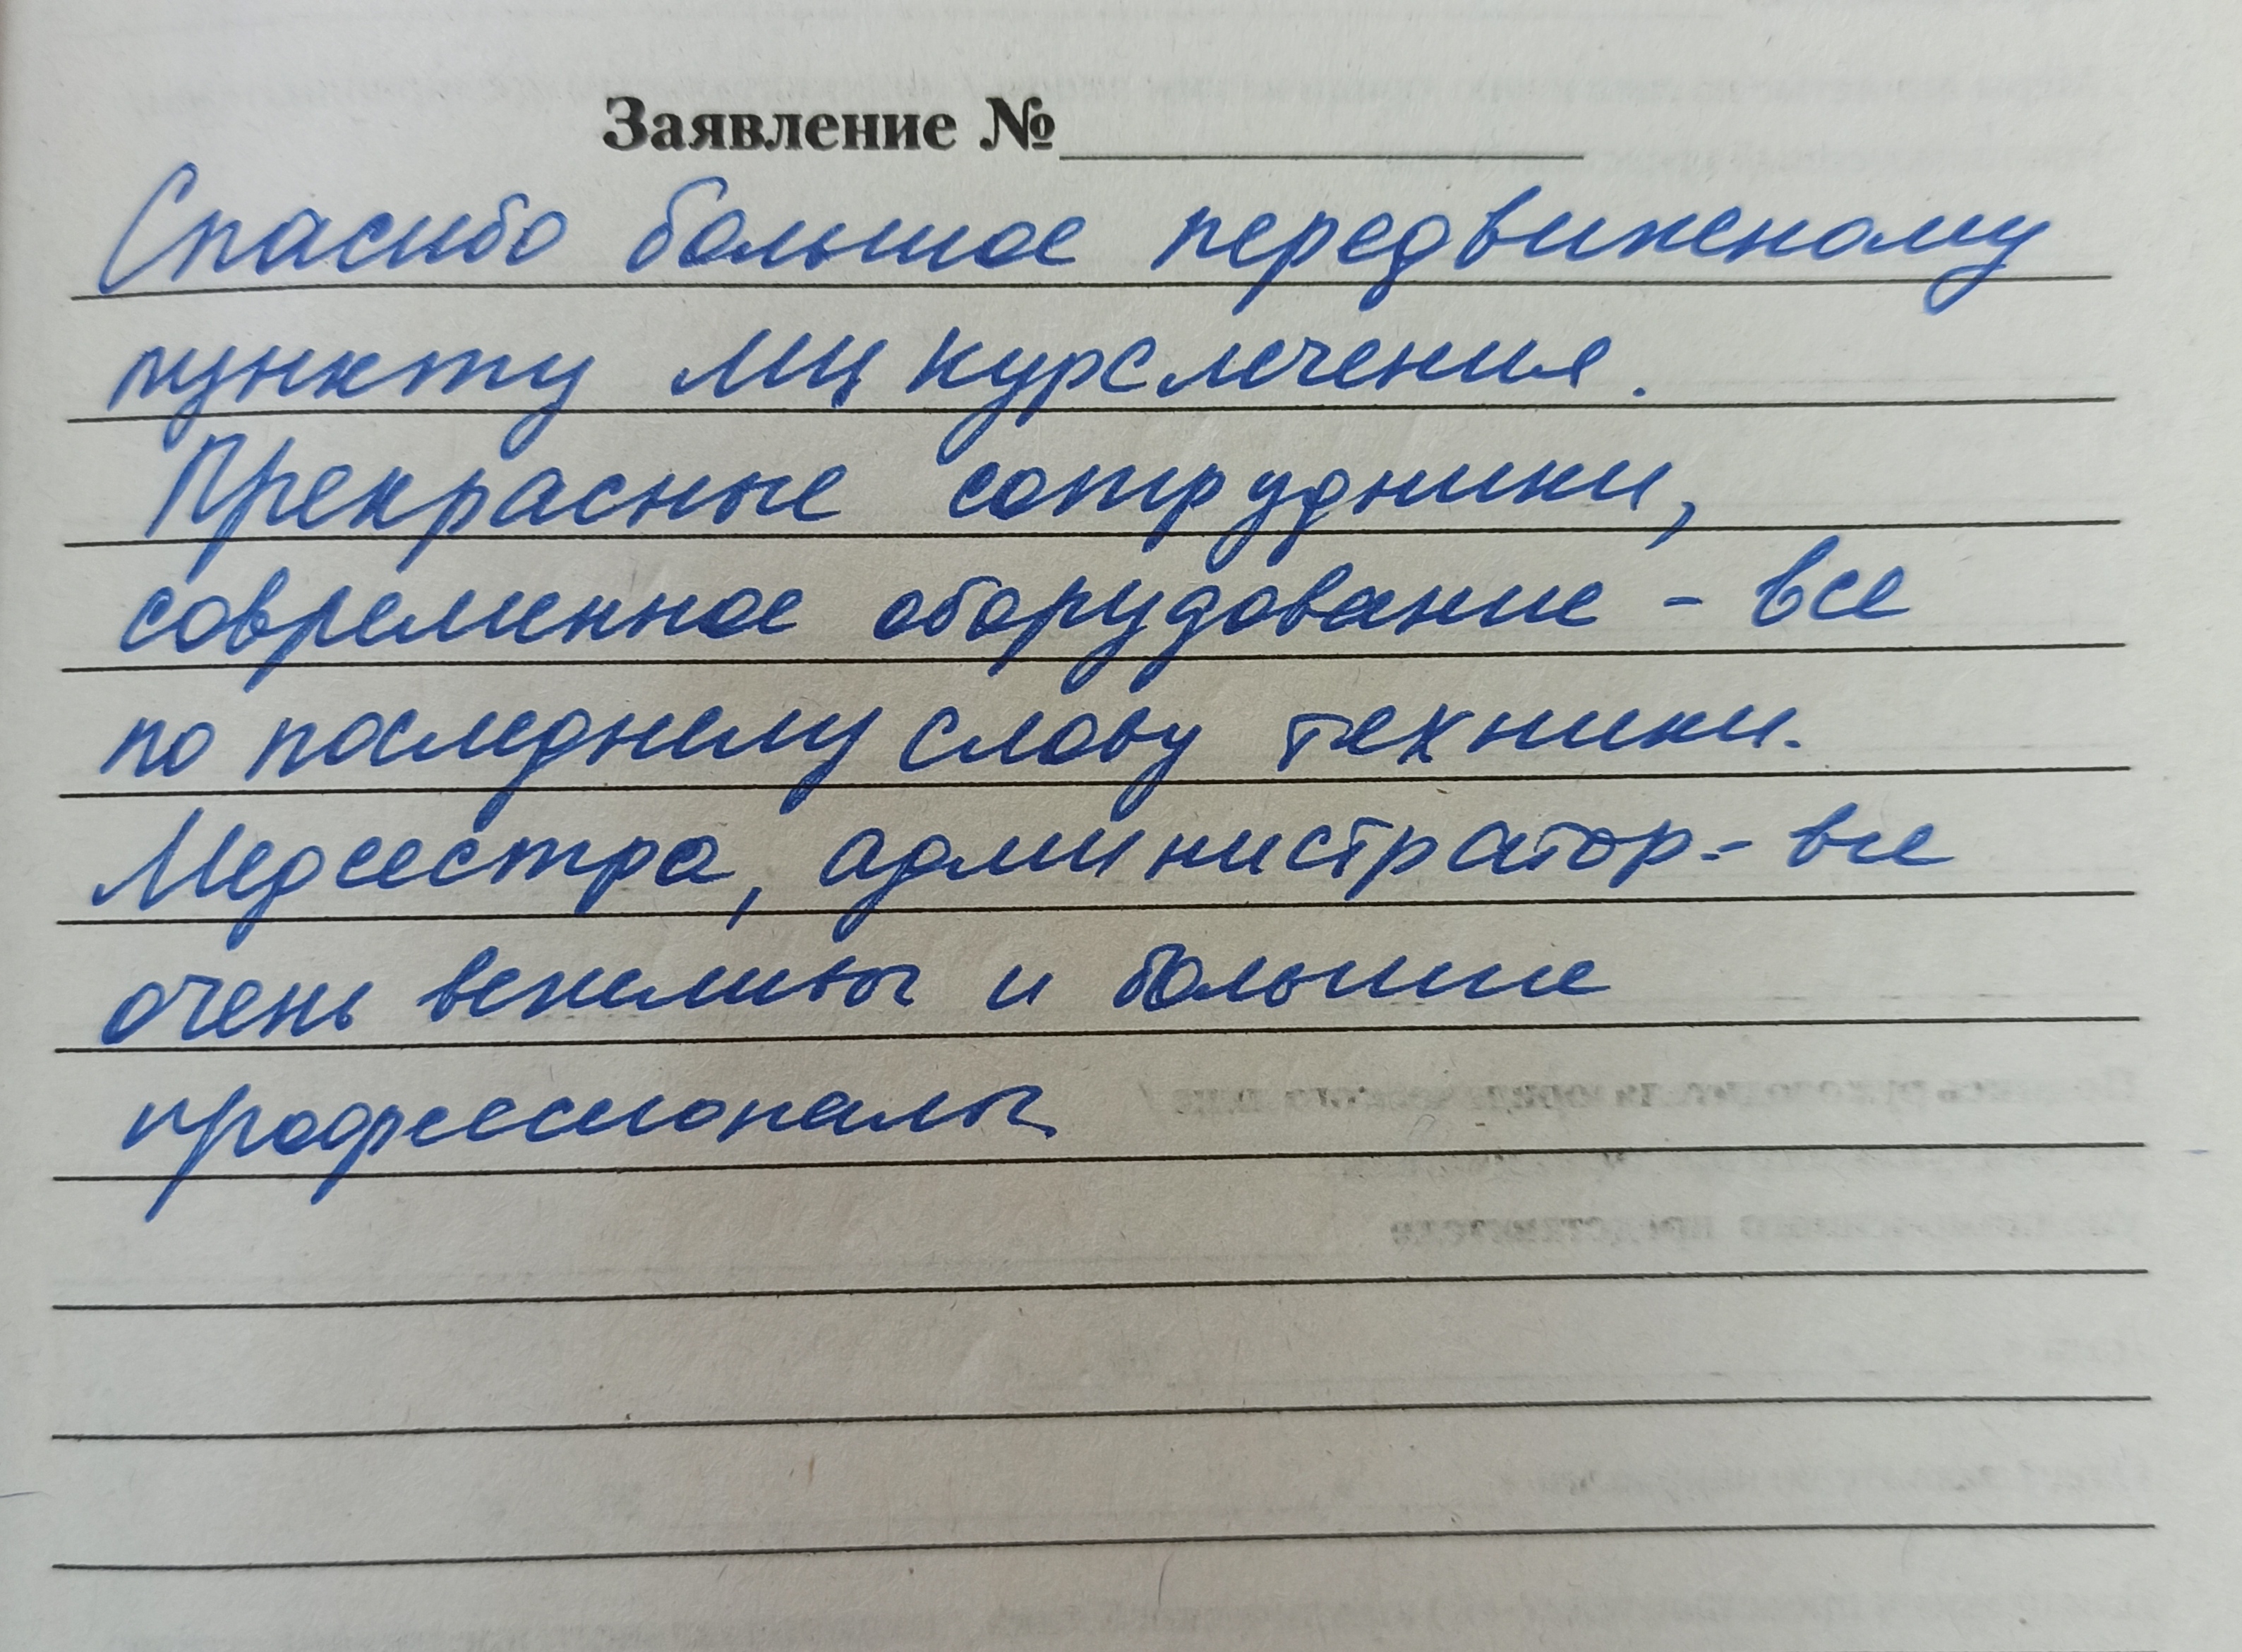 Заявление №
Спасибо большое передвижному
пункту МЦ Курс лечения.
Прекрасные сотрудники,
современное оборудование - все
по последнему слову техники.
Медсестра, администратор - все
очень вежливы и большие
профессионалы